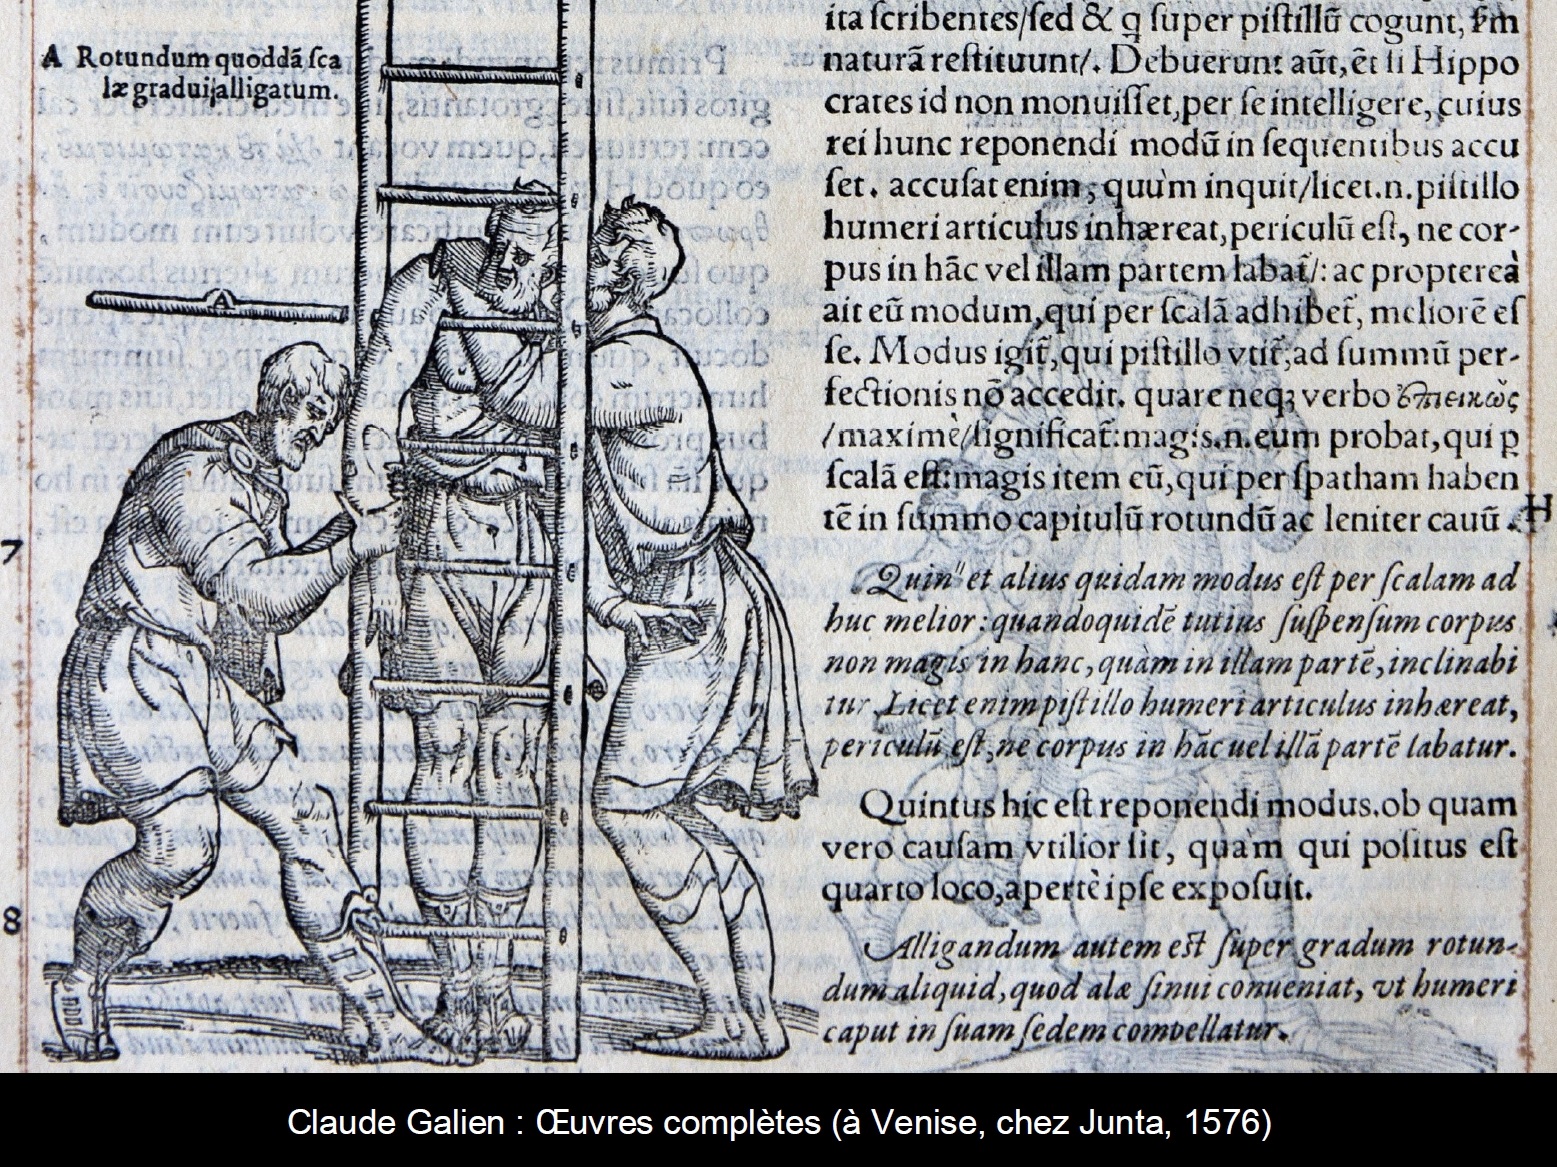 A Rotundum quoddã ſca
læ gradui alligatum.
A
7
8
ita ſcribentes/ſed & q̃ ſuper piſtillũ cogunt, ẜm
naturã reſtituunt/. Debuerunt aũt, et ſi Hippo
crates id non monuiſſet, per ſe intelligere, cuius
rei hunc reponendi modũ in ſequentibus accu
ſet. accuſat enim, quùm inquit/licet.n.piſtillo
humeri articulus inhæreat, periculũ eſt, ne cor-
pus in hãc vel illam partem labat̃/: ac proptereà
ait eũ modum, qui per ſcalã adhibet̃, meliorẽ eſ
ſe. Modus igit̃, qui piſtillo vtit̃, ad ſummũ per-
fectionis nõ accedit. quare neq; verbo ἐπιεικῶς
/maximè/ſignificat̃: magis.n. eum probat, qui ꝑ
ſcalã eſt: magis item eũ, qui per ſpatham haben
tẽ in ſummo capitulũ rotundũ ac leniter cauũ. H
Quin et alius quidam modus eſt per ſcalam ad
huc melior: quandoquidẽ tutius ſuſpenſum corpus
non magis in hanc, quàm in illam partẽ, inclinabi
tur. Licet enim piſtillo humeri articulus inhæreat,
periculũ eſt, ne corpus in hãc uel illã partẽ labatur.
Quintus hic eſt reponendi modus. ob quam
vero cauſam vtilior ſit, quam qui poſitus eſt
quarto loco, apertè ipſe expoſuit.
Alligandum autem eſt ſuper gradum rotun-
dum aliquid, quod alæ ſinui conueniat, vt humeri
caput in ſuam ſedem compellatur.
Claude Galien : Œuvres complètes (à Venise, chez Junta, 1576)